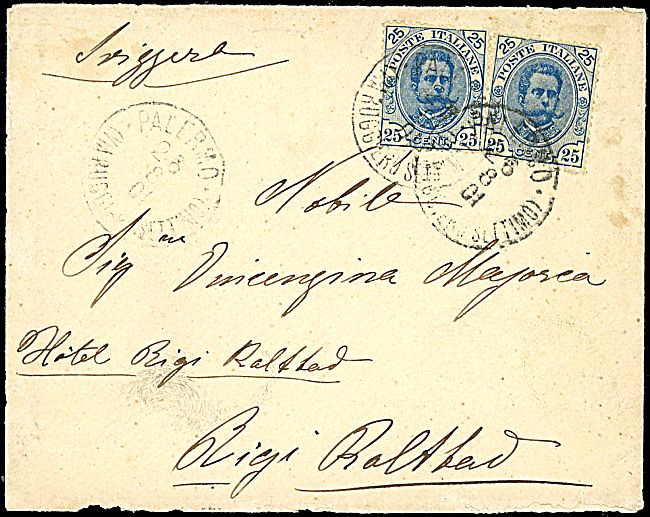 Svizzera
25 POSTE ITALIANE 25
25 CENT. 25
25 POSTE ITALIANE 25
25 CENT. 25
PALERMO
28
Nobile
Sig.na Vincenzina Majorca
Hôtel Rigi Kaltbad
Rigi Kaltbad